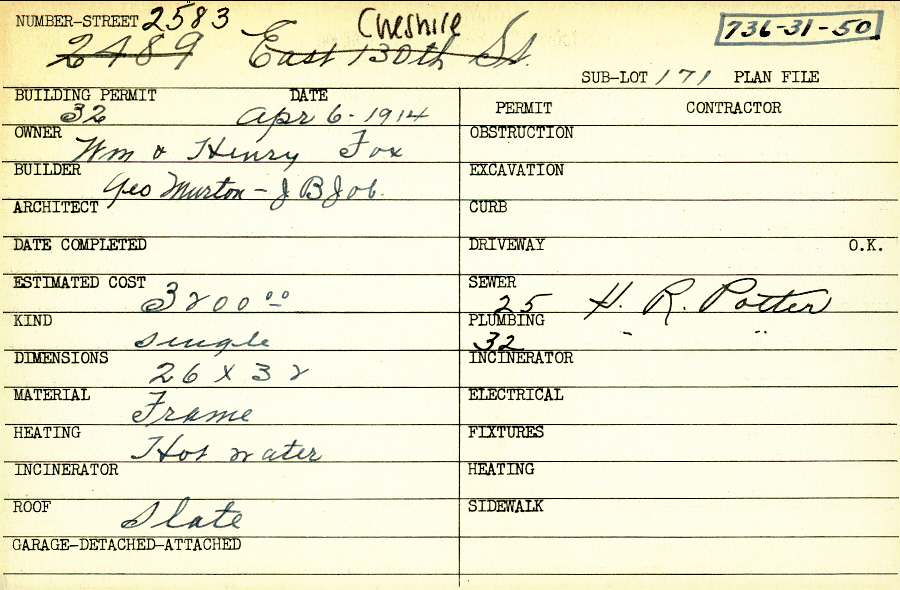 NUMBER-STREET 2583 Cheshire 736-31-50
2489 East 130th St.
SUB-LOT 171 PLAN FILE
BUILDING PERMIT DATE
32 Apr 6-1914
PERMIT CONTRACTOR
OWNER Wm & Henry Fox
OBSTRUCTION
BUILDER Geo Murton - J B Job.
EXCAVATION
ARCHITECT
CURB
DATE COMPLETED
DRIVEWAY O.K.
ESTIMATED COST 3200 00
SEWER
25 H. R. Potter
KIND single
PLUMBING
32 " "
DIMENSIONS 26 X 32
INCINERATOR
MATERIAL Frame
ELECTRICAL
HEATING Hot water
FIXTURES
INCINERATOR
HEATING
ROOF Slate
SIDEWALK
GARAGE-DETACHED-ATTACHED